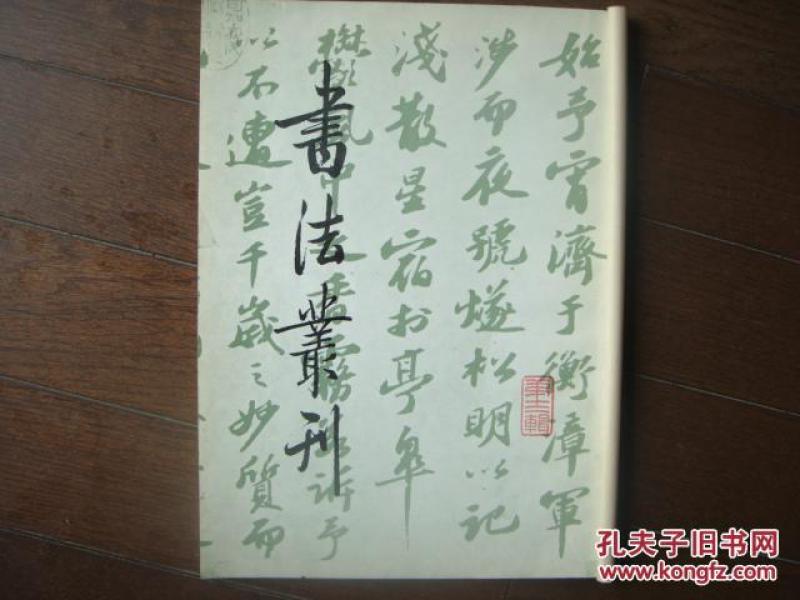 始予宵濟于衡漳軍
涉而夜號燧松明以記
淺散星宿於亭皋
鬱風中之香霧若訴予
以不遭豈千歲之妙質而
書法叢刊
第十二輯
孔夫子旧书网
www.kongfz.com